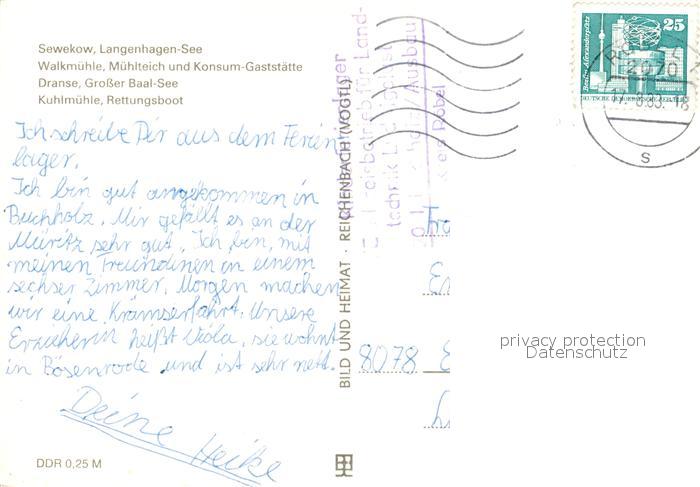 Sewekow, Langenhagen-See
Walkmühle, Mühlteich und Konsum-Gaststätte
Dranse, Großer Baal-See
Kuhlmühle, Rettungsboot
Ich schreibe Dir aus dem Ferien
lager.
Ich bin gut angekommen in
Buchholz. Mir gefällt es an der
Müritz sehr gut. Ich bin, mit
meinen Freundinen in einem
sechser Zimmer. Morgen machen
wir eine Krämserfahrt. Unsere
Erzieherin heißt Viola, sie wohnt
in Bösenrode und ist sehr nett.
Deine Heike
DDR 0,25 M
BILD UND HEIMAT · REICHENBACH (VOGTL)
betrieb für Land-
technik
Ausbau
Röbel
Berlin-Alexanderplatz
25
DEUTSCHE DEMOKRATISCHE REPUBLIK
2070
s
8078
privacy protection
Datenschutz